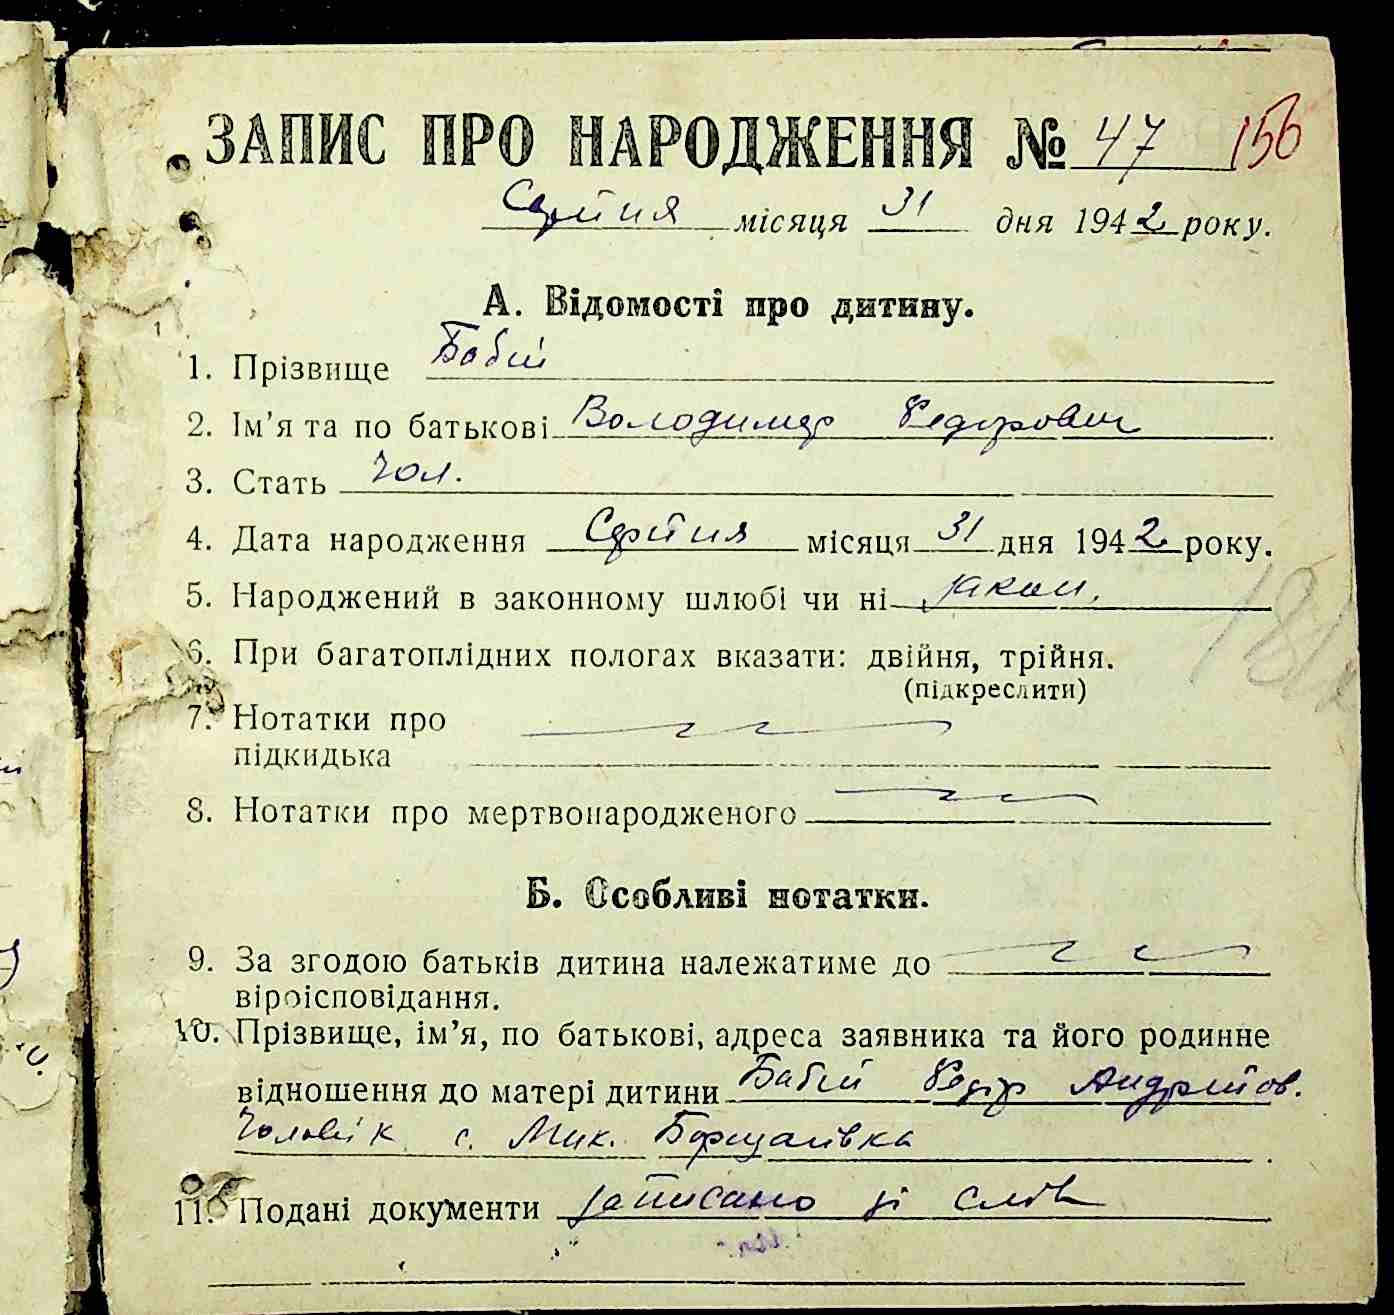 ЗАПИС ПРО НАРОДЖЕННЯ № 47 156
Серпня місяця 31 дня 1942 року.
А. Відомості про дитину.
1. Прізвище Бабій
2. Ім’я та по батькові Володимир Федорович
3. Стать Чол.
4. Дата народження Серпня місяця 31 дня 1942 року.
5. Народжений в законному шлюбі чи ні закон.
6. При багатоплідних пологах вказати: двійня, трійня.
(підкреслити)
7. Нотатки про
підкидька
8. Нотатки про мертвонародженого
Б. Особливі нотатки.
9. За згодою батьків дитина належатиме до
віроісповідання.
10. Прізвище, ім’я, по батькові, адреса заявника та його родинне
відношення до матері дитини Бабій Федір Андрійов.
Чоловік с. Мик. Борщагівка
11. Подані документи записано зі слів